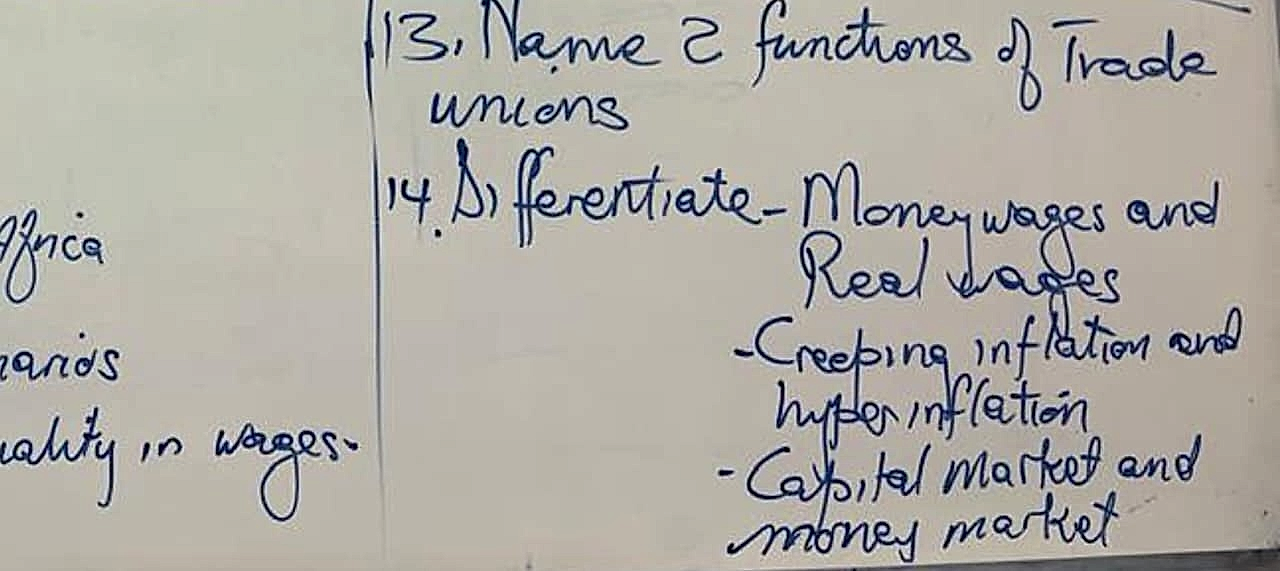 Africa
in wages.
13. Name 2 functions of Trade
unions
14. Differentiate - Money wages and
Real wages
- Creeping inflation and
hyper inflation
- Capital Market and
money market